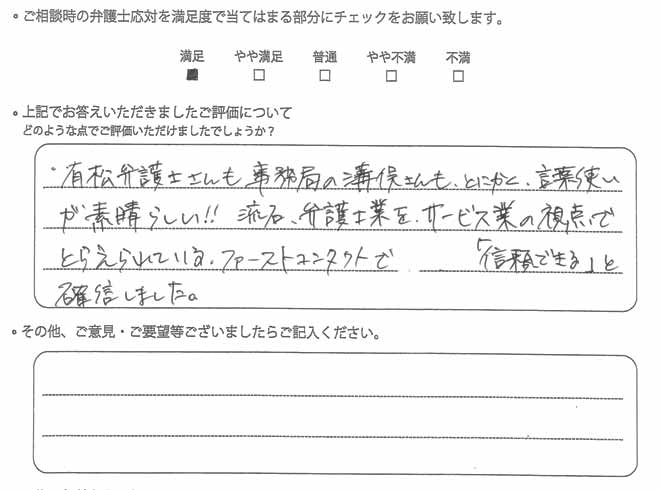 。ご相談時の弁護士応対を満足度で当てはまる部分にチェックをお願い致します。
満足 やや満足 普通 やや不満 不満
。上記でお答えいただきましたご評価について
どのような点でご評価いただけましたでしょうか?
・有松弁護士さんも事務局の溝俣さんも、とにかく、言葉使い
が素晴らしい!! 流石、弁護士業を、サービス業の視点で
とらえられている。ファーストコンタクトで 「信頼できる」と
確信しました。
。その他、ご意見・ご要望等ございましたらご記入ください。